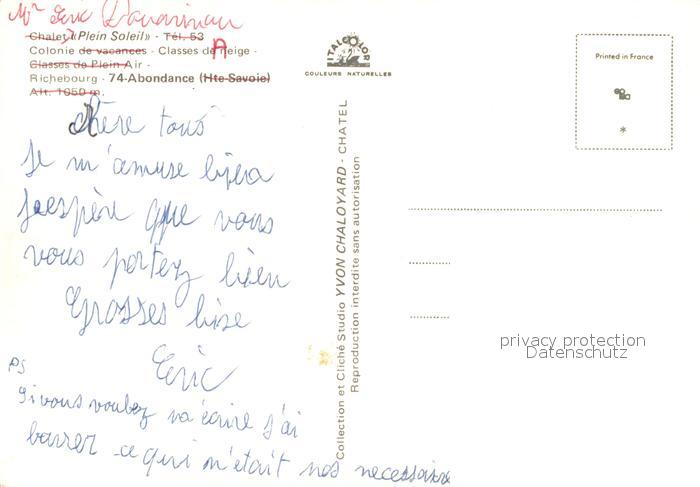 Mr Eric
Chalet «Plein Soleil» - Tél. 53
Colonie de vacances - Classes de Neige -
Classes de Plein Air -
Richebourg - 74-Abondance (Hte-Savoie)
Alt. 1050 m.
chère tous
Je m'amuse bien
J'espère que vous
vous portez bien
Grosses bise
Eric
PS
Si vous voulez m'écrire j'ai
barrer ce qui n'était nos necessaire
ITALCOLOR
COULEURS NATURELLES
Collection et Cliché Studio YVON CHALOYARD - CHATEL
Reproduction interdite sans autorisation
Printed in France
*
privacy protection
Datenschutz